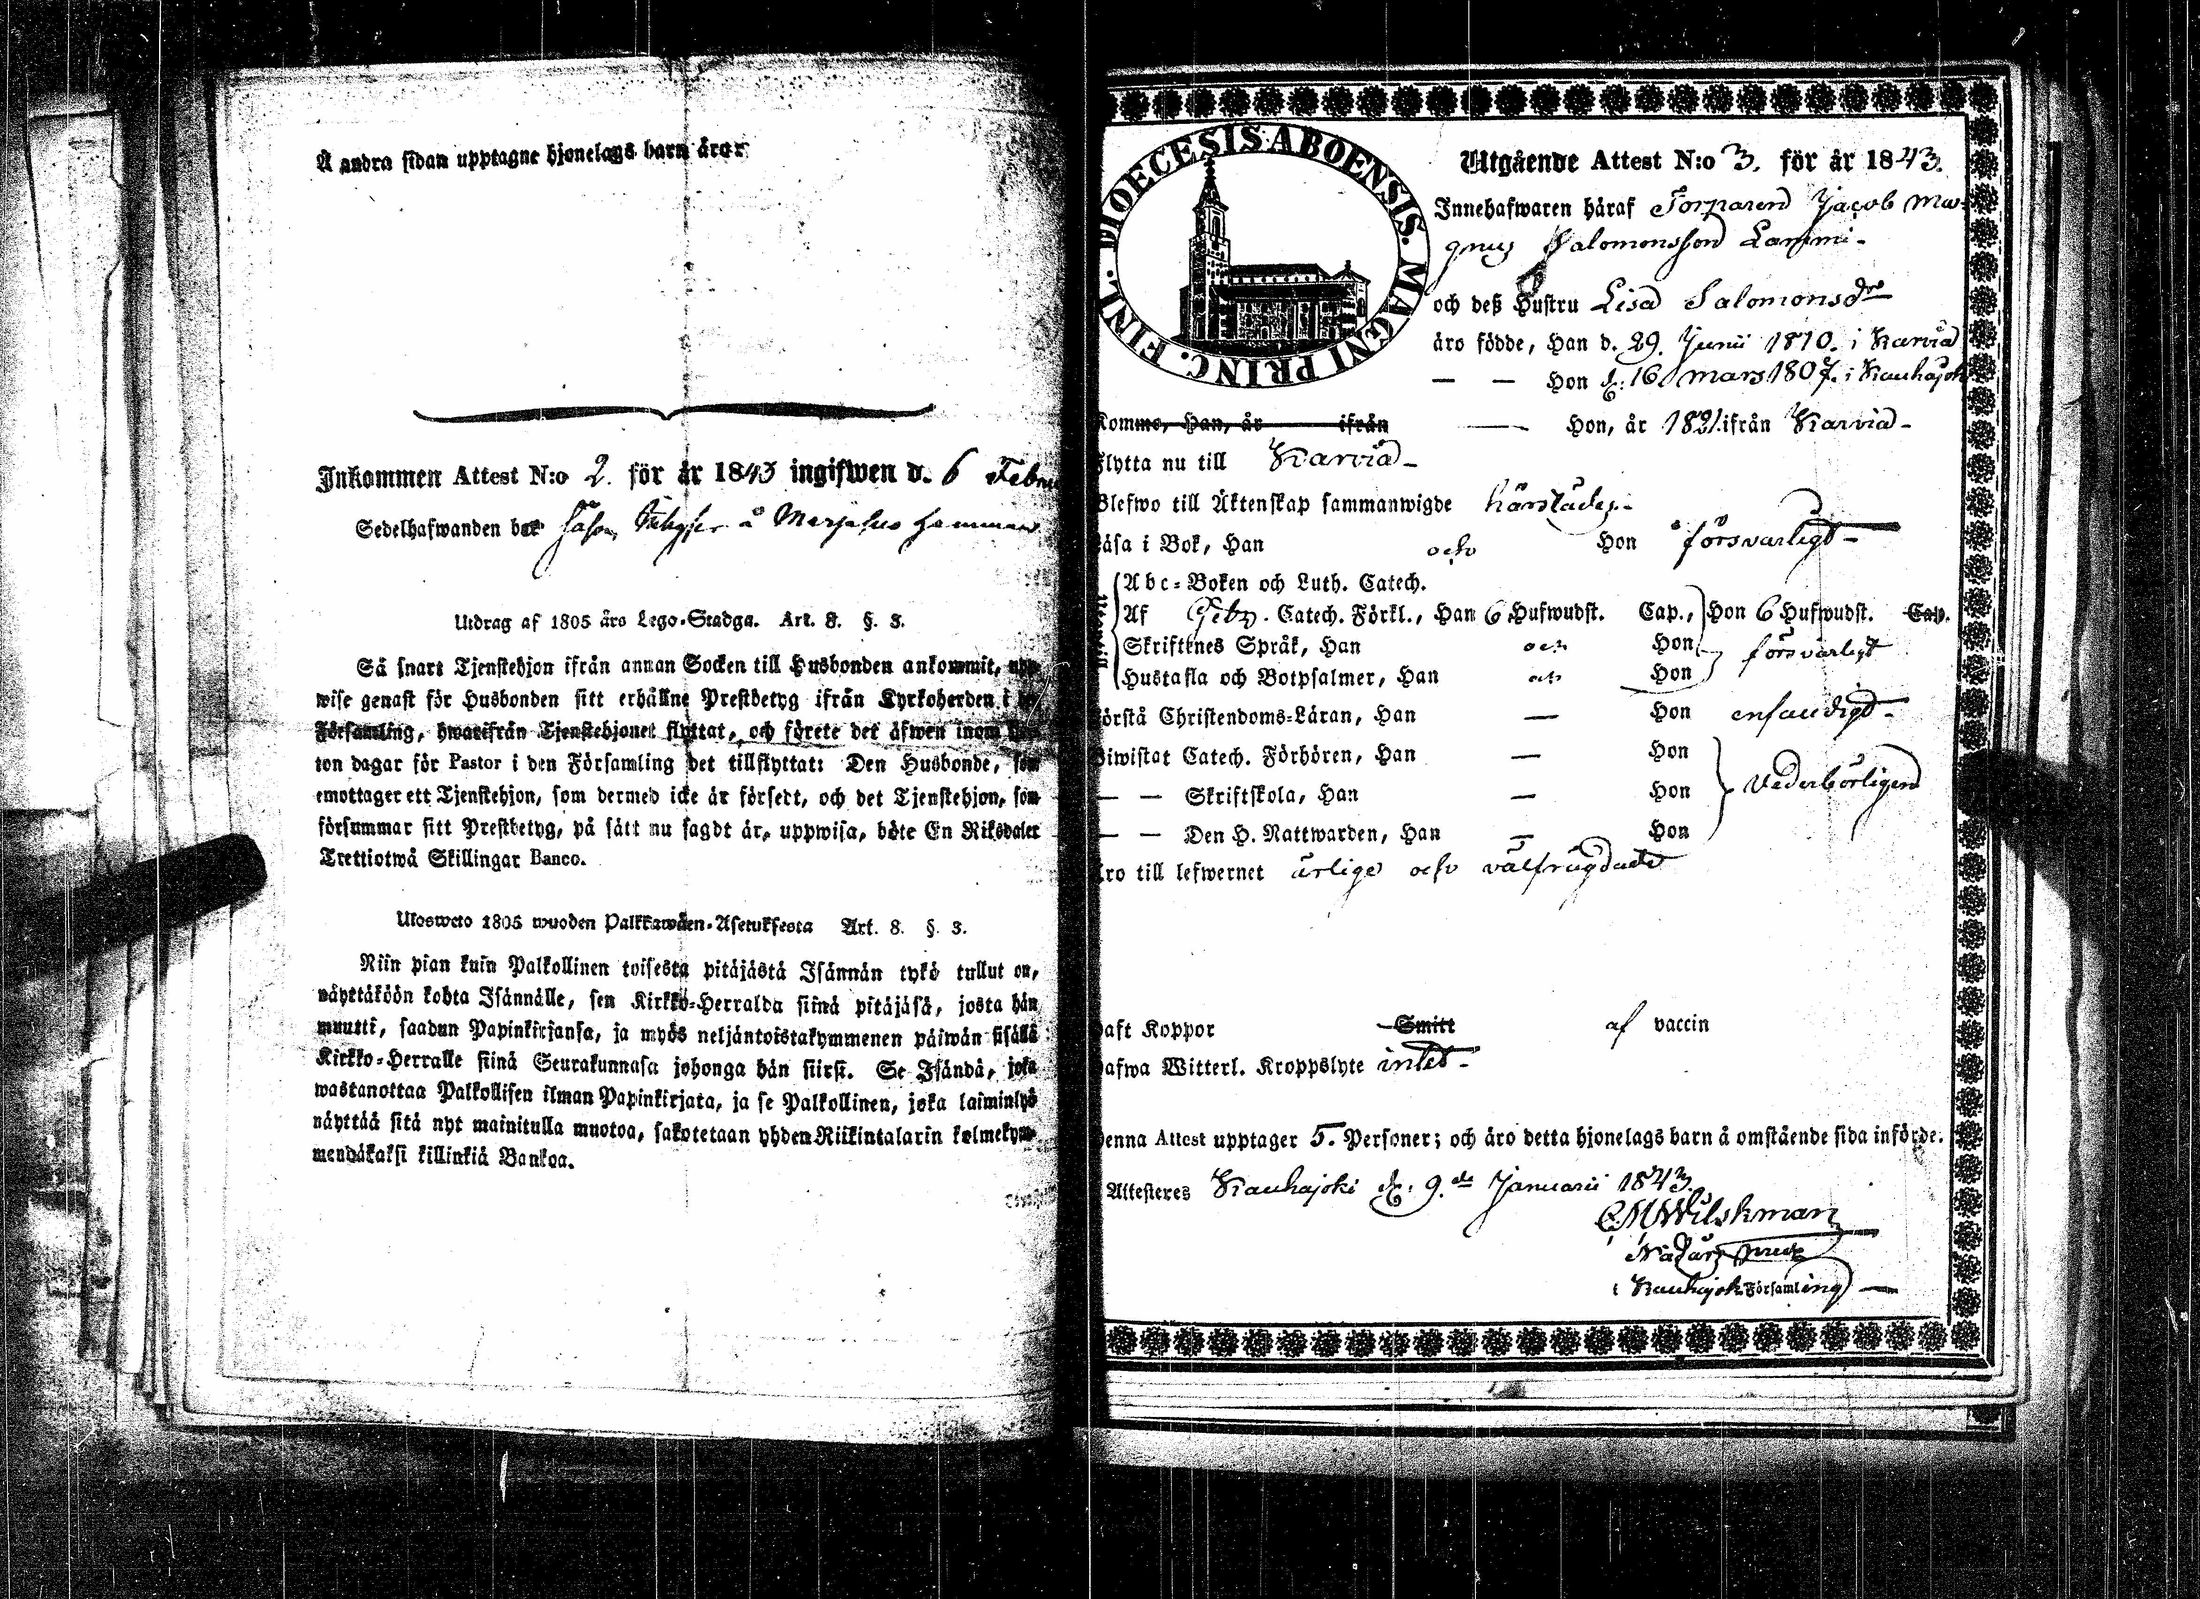 Å andra sidan upptagne hjonelags barn äro:
Inkommen Attest N:o 2. för år 1843 ingifwen d. 6 Febru
Sedelhafwanden bor
Utdrag af 1805 års Lego-Stadga. Art. 8. §. 3.
Så snart Tjenstehjon ifrån annan Socken till Husbonden ankommit, upp-
wise genast för Husbonden sitt erhållne Prestbetyg ifrån Kyrkoherden i
Församling, hwarifrån Tjenstehjonet flyttat, och förete det äfwen inom
ton dagar för Pastor i den Församling det tillflyttat: Den Husbonde, som
emottager ett Tjenstehjon, som dermed icke är försedt, och det Tjenstehjon, som
försummar sitt Prestbetyg, på sätt nu sagdt är, uppwisa, böte En Riksdaler
Trettiotwå Skillingar Banco.
Ulosweto 1805 wuoden Palkkawäen-Asetuksesta Art. 8. §. 3.
Niin pian kuin Palkollinen toisesta pitäjästä Isännän tykö tullut on,
näyttäköön kohta Isännälle, sen Kirkko-Herralda siinä pitäjäsä, josta hän
muutti, saadun Papinkirjansa, ja myös neljäntoistakymmenen päiwän sisällä
Kirkko-Herralle siinä Seurakunnasa johonga hän siirsi. Se Isändä, joka
wastanottaa Palkollisen ilman Papinkirjata, ja se Palkollinen, joka laiminlyö
näyttää sitä nyt mainitulla muotoa, sakotetaan yhden Riikintalarin kolmekym-
mendäkaksi killinkiä Bankoa.
DIOECESIS ABOENSIS. MAGNI PRINC. FINL.
Utgående Attest N:o 3. för år 1843.
Innehafwaren häraf Torparen Jacob Ma-
gnus Salomonsson Lammi-
och deß Hustru Lisa Salomonsdr
äro födde, Han d. 29. Junii 1810. i Karvia
— — Hon d. 16 mars 1807. i Kauhajoki
Komme, Han, år ifrån — Hon, år 1821. ifrån Karvia-
flytta nu till Karvia-
Blefwo till Äktenskap sammanwigde härstädes.-
Läsa i Bok, Han och Hon försvarligt-
Abc-Boken och Luth. Catech.
Af Catech. Förkl., Han 6 Hufwudst. Cap., Hon 6 Hufwudst. Cap.
Skriftenes Språk, Han och Hon försvarligt
Hustafla och Botpsalmer, Han och Hon
Förstå Christendoms-Läran, Han — Hon enfaldigt-
Biwistat Catech. Förhören, Han — Hon
— — Skriftskola, Han — Hon Vederbörligen
— — Den H. Nattwarden, Han — Hon
Äro till lefwernet ärlige och välfrägdade
Haft Koppor Smitt af vaccin
Hafwa Witterl. Kroppslyte intet-
Denna Attest upptager 5. Personer; och äro detta hjonelags barn å omstående sida införde.
Attesteres Kauhajoki d. 9.de Januarii 1843.
CMWilskman
Nådårs
i Kauhajoki Församling —